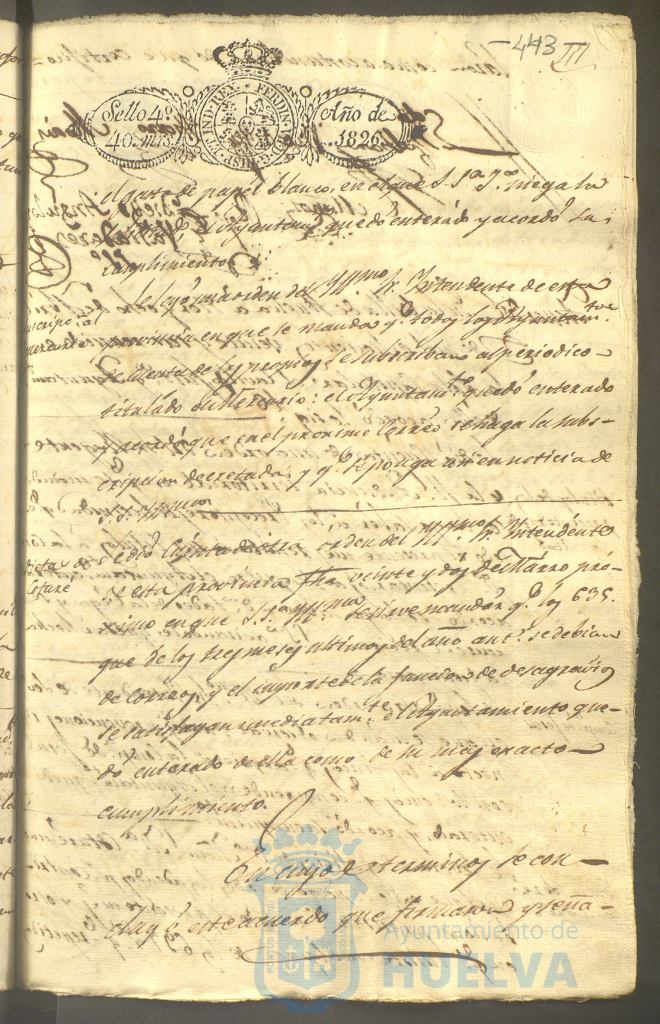 -443 III
Sello 4º
40. mrs.
HISP. ET IND. REX. FERDIN. VII
Año de
1826
el gasto de papel blanco, en el que S. Sª. Yª. niega la
el Ayuntamto quedó enterado y acordó su
cumplimiento.
Se leyó una orden del Yllmo. Sr. Yntendente de esta
provincia en que se manda qe. todos los Ayuntamtos.
de cuenta de los propios se subscriban al periodico
titulado el Mercurio: el Ayuntamto. quedó enterado
y acordó que en el proximo Correo se haga la subs-
cripcion decretada, y qe. se ponga asi en noticia de
S. S. Yllma.
Se dió Cuenta de otra orden del Yllmo. Sr. Yntendente
de esta provincia fha. veinte y dos de Marzo pró-
ximo en que S. Sª. Yllma. se sirve mandar qe. los 635.
que de los tres meses ultimos del año antr. se debian
de Correos, y el importe de la funcion de desagravios
se satisfagan inmediatamte.: el Ayuntamiento que-
dó enterado de ella como de su mas exacto
cumplimiento.
En cuyos terminos se con-
cluyó este acuerdo que firmaron y seña-
Ayuntamiento de
HUELVA